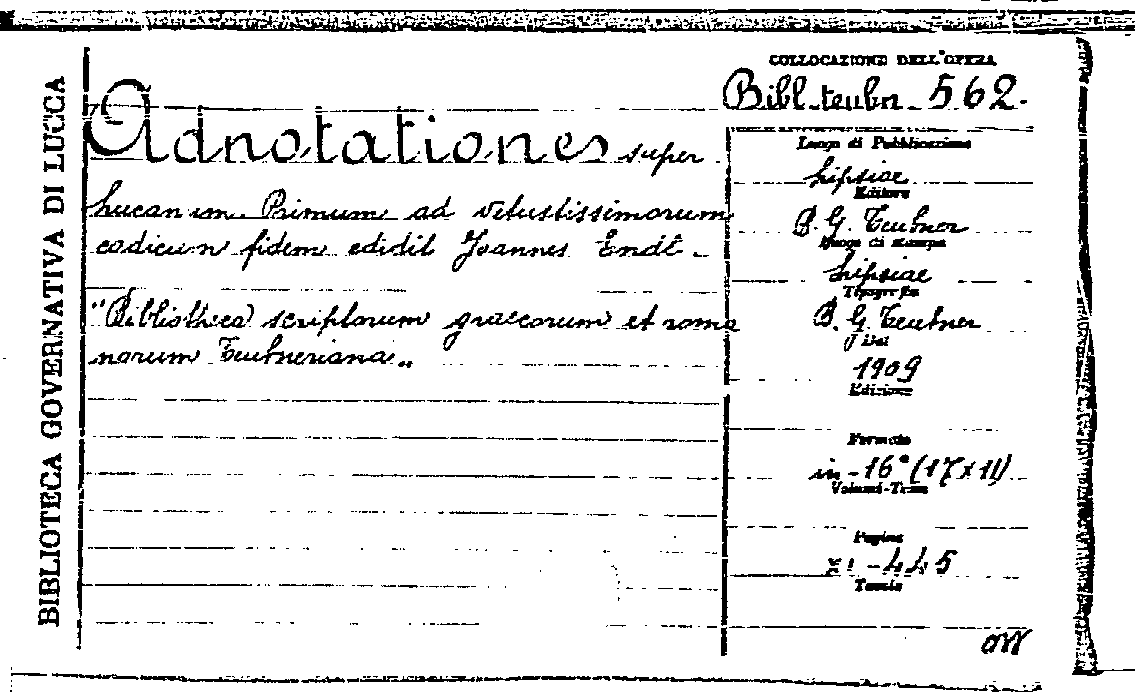 BIBLIOTECA GOVERNATIVA DI LUCCA
COLLOCAZIONE DELL'OPERA
Bibl. teubn. 562.
Adnotationes super
Lucanum. Primum ad vetustissimorum
codicum fidem edidit Joannes Endt.
"Bibliotheca scriptorum graecorum et roma
norum Teubneriana„
Luogo di Pubblicazione
Lipsiae
Editore
B. G. Teubner
Luogo di stampa
Lipsiae
Tipografia
B. G. Teubner
1909
Edizione
Formato
in-16° (17x11)
Volumi-Tomi
Pagine
XI-445
Tavole